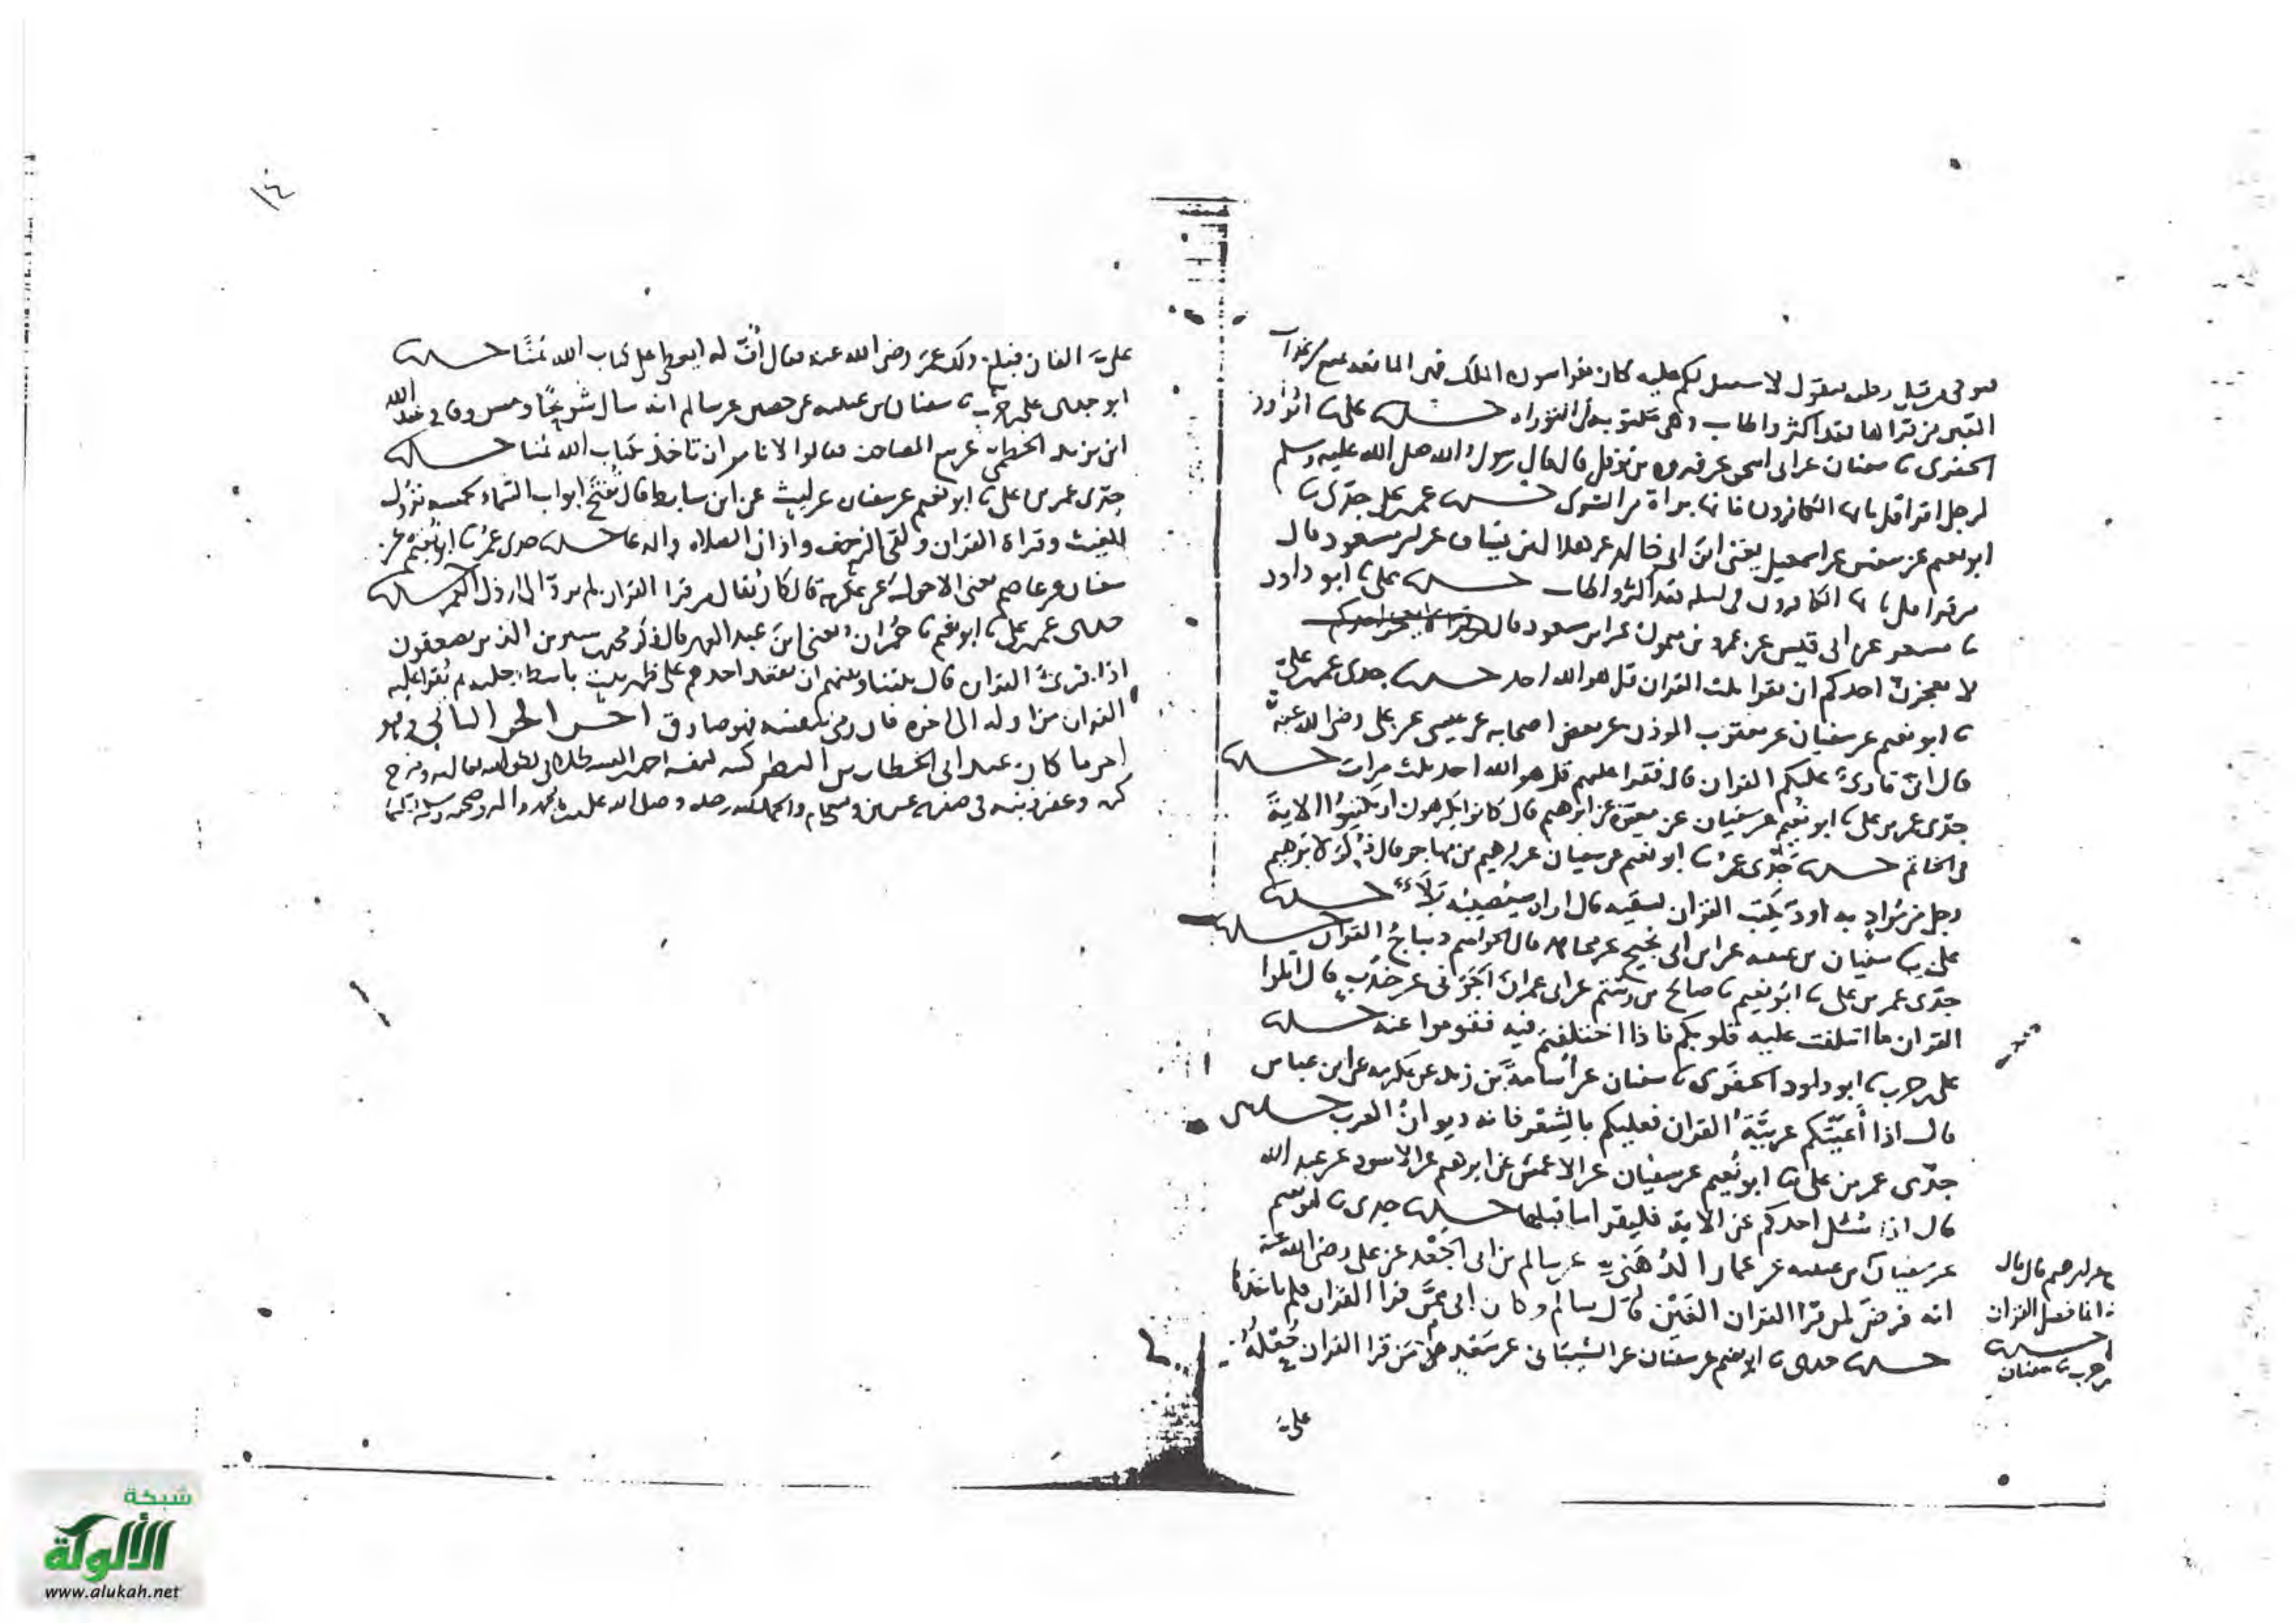 فيوتى من قبل رجليه فيقول لا سبيل لكم عليه كان يقرا سورة الملك فهى المانعة تمنع من عذاب
القبر من قراها فقد اكثر واطاب وهى مكتوبة فى التوراة حدثنا على نا ابو داود
الحفرى نا سفيان عن ابى اسحق عن فروة بن نوفل قال قال رسول الله صلى الله عليه وسلم
لرجل اقرا قل يا ايها الكافرون فانها براة من الشرك حدثنا عمر بن على جدى نا
ابو نعيم عن سفين عن اسمعيل يعنى ابن ابى خالد عن هلال بن يساف عن ابن مسعود قال
من قرا قل يا ايها الكافرون فى ليلة فقد اكثر واطاب حدثنا على نا ابو داود
نا مسعر عن ابى قيس عن عمرو بن ميمون عن ابن مسعود قال
لا يعجزن احدكم ان يقرا ثلث القران قل هو الله احد حدثنا جدى عمر بن على
نا ابو نعيم عن سفيان عن يعقوب المؤذن عن بعض اصحابه عن عيسى عن على رضى الله عنه
قال انى قارئ عليكم القران قال فقرا عليهم قل هو الله احد ثلث مرات حدثنا
جدى عمر بن على نا ابو نعيم عن سفيان عن مغيرة عن ابرهيم قال كانوا يكرهون ان يكتبوا الاية
فى الخاتم حدثنا جدى عمر نا ابو نعيم عن سفيان عن ابرهيم بن مهاجر قال ذكر لابرهيم
رجل من مراد به اود يكتب القران ليسقيه قال اراه سيصيبه بلاء حدثنا
على نا سفيان بن عيينه عن ابن ابى نجيح عن مجاهد قال الحواميم ديباج القران حدثنا
جدى عمر بن على نا ابو نعيم نا صالح بن رستم عن ابى عمران الجونى عن جندب قال اتلوا
القران ما ائتلفت عليه قلوبكم فاذا اختلفتم فيه فقوموا عنه حدثنا
على بن حرب نا ابو داود الحفرى نا سفيان عن اسامة بن زيد عن عكرمه عن ابن عباس
قال اذا اعيتكم عربية القران فعليكم بالشعر فانه ديوان العرب حدثنى
جدى عمر بن على نا ابو نعيم عن سفيان عن الاعمش عن ابرهيم عن الاسود عن عبد الله
قال اذا سئل احدكم عن الاية فليقرا ما قبلها حدثنا جدى نا ابو نعيم
عن سفيان بن عيينه عن عمار الدهنى عن سالم بن ابى الجعد عن على رضى الله عنه
انه فرض لمن قرا القران الفين قال سالم وكان ابى ممن قرا القران فلم ياخذها
حدثنا جدى نا ابو نعيم عن سفيان عن الشيبانى عن قرا القران
على
عن ابرهيم قال قال
فضل القران
حدثنا
بن حرب نا سفيان
١٤
على الفين فبلغ ذلك عمر رضى الله عنه فقال اف له ايعطى على كتاب الله ثمنا حدثنا
ابو جدى على بن حرب نا سفيان بن عيينه عن حصين عن سالم انه سال شريحا ومسروقا وعبد الله
ابن يزيد الخطمى عن بيع المصاحف فقالوا لا نامر ان تاخذ بكتاب الله ثمنا حدثنا
جدى عمر بن على نا ابو نعيم عن سفيان عن ليث عن ابن سابط قال تفتح ابواب السماء لخمسه نزول
الغيث وقراة القران ولقى الزحف واذان الصلاه والدعا حدثنا جدى عمر نا ابو نعيم عن
سفيان عن عاصم يعنى الاحول عن عكرمة قال كان يقال من قرا القران لم يرد الى ارذل العمر حدثنا
جدى عمر بن على نا ابو نعيم نا حمران يعنى ابن عبد العزيز قال ذكر محمد بن سيرين الذين يصعقون
اذا قرئ القران قال بيننا وبينهم ان يقعد احدهم على ظهر بيت باسطا رجليه ثم يقرا عليه
القران من اوله الى اخره فان رمى بنفسه فهو صادق اخر الجزو الثانى وهو
اخر ما كان عند ابى الخطاب بن البطر كتبه لنفسه احمد
وصلى الله على سيدنا محمد واله وصحبه وسلم تسليما
شبكة
الألوكة
www.alukah.net